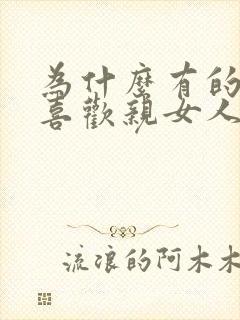 為什麼有的
喜歡親女人
流浪的阿木木